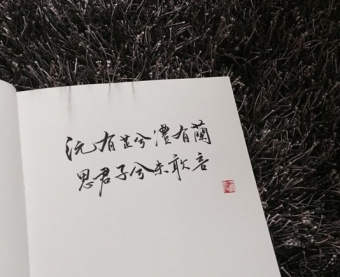 沅有芷兮澧有蘭
思君子兮未敢言